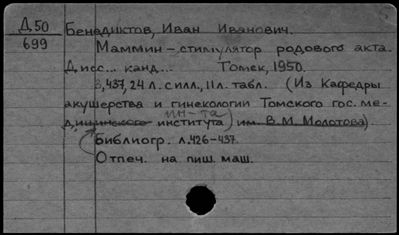 Д.50
699
Бенедиктов, Иван Иванович.
Маммин – стимулятор родового акта.
Дисс... канд... Томск, 1950.
3,437, 24 л. силл., 11 л. табл. (Из Кафедры
акушерства и гинекологии Томского гос. ме-
ин-та)
дицинского института им. В.М. Молотова)
Библиогр. л. 426-437.
Отпеч. на пиш. маш.